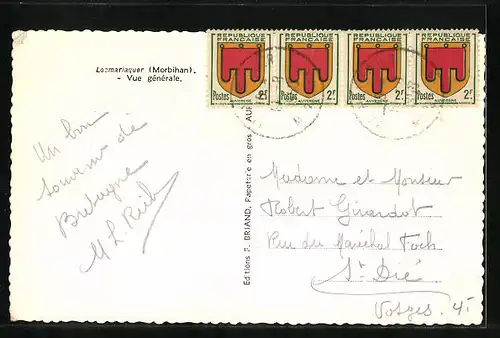 Locmariaquer (Morbihan).
- Vue générale.
REPUBLIQUE FRANÇAISE
Postes 2F
AUVERGNE
REPUBLIQUE FRANÇAISE
Postes 2F
AUVERGNE
REPUBLIQUE FRANÇAISE
Postes 2F
AUVERGNE
REPUBLIQUE FRANÇAISE
Postes 2F
AUVERGNE
Un bon
souvenir de
Bretagne
M L.
Editions F. BRIAND, Papeterie en gros - AUR
Madame et Monsieur
Robert Girardot
Rue du Maréchal Foch
St Dié
Vosges. 4.-